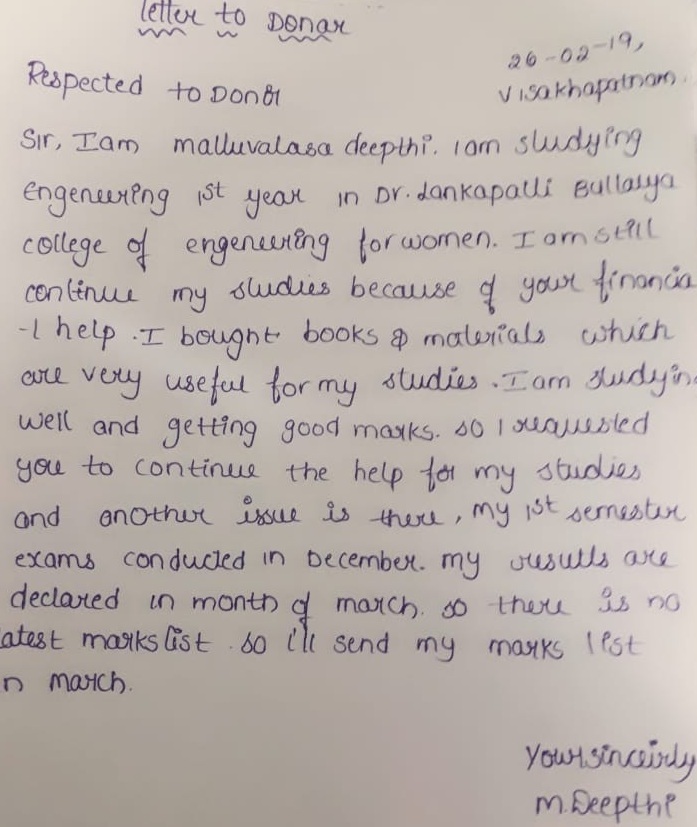 letter to Donar
26-02-19,
Visakhapatnam.
Respected to Donor
Sir, I am malluvalasa deepthi. I am studying
engeneering 1st year in Dr. Lankapalli Bullayya
college of engeneering for women. I am still
continue my studies because of your financia
-l help. I bought books & materials which
are very useful for my studies. I am studyin
well and getting good marks. so I requested
you to continue the help for my studies
and another issue is there, my 1st semester
exams conducted in December. my results are
declared in month of march. so there is no
atest marks list. so i'll send my marks list
n march.
Your sinceirly
M.Deepthi